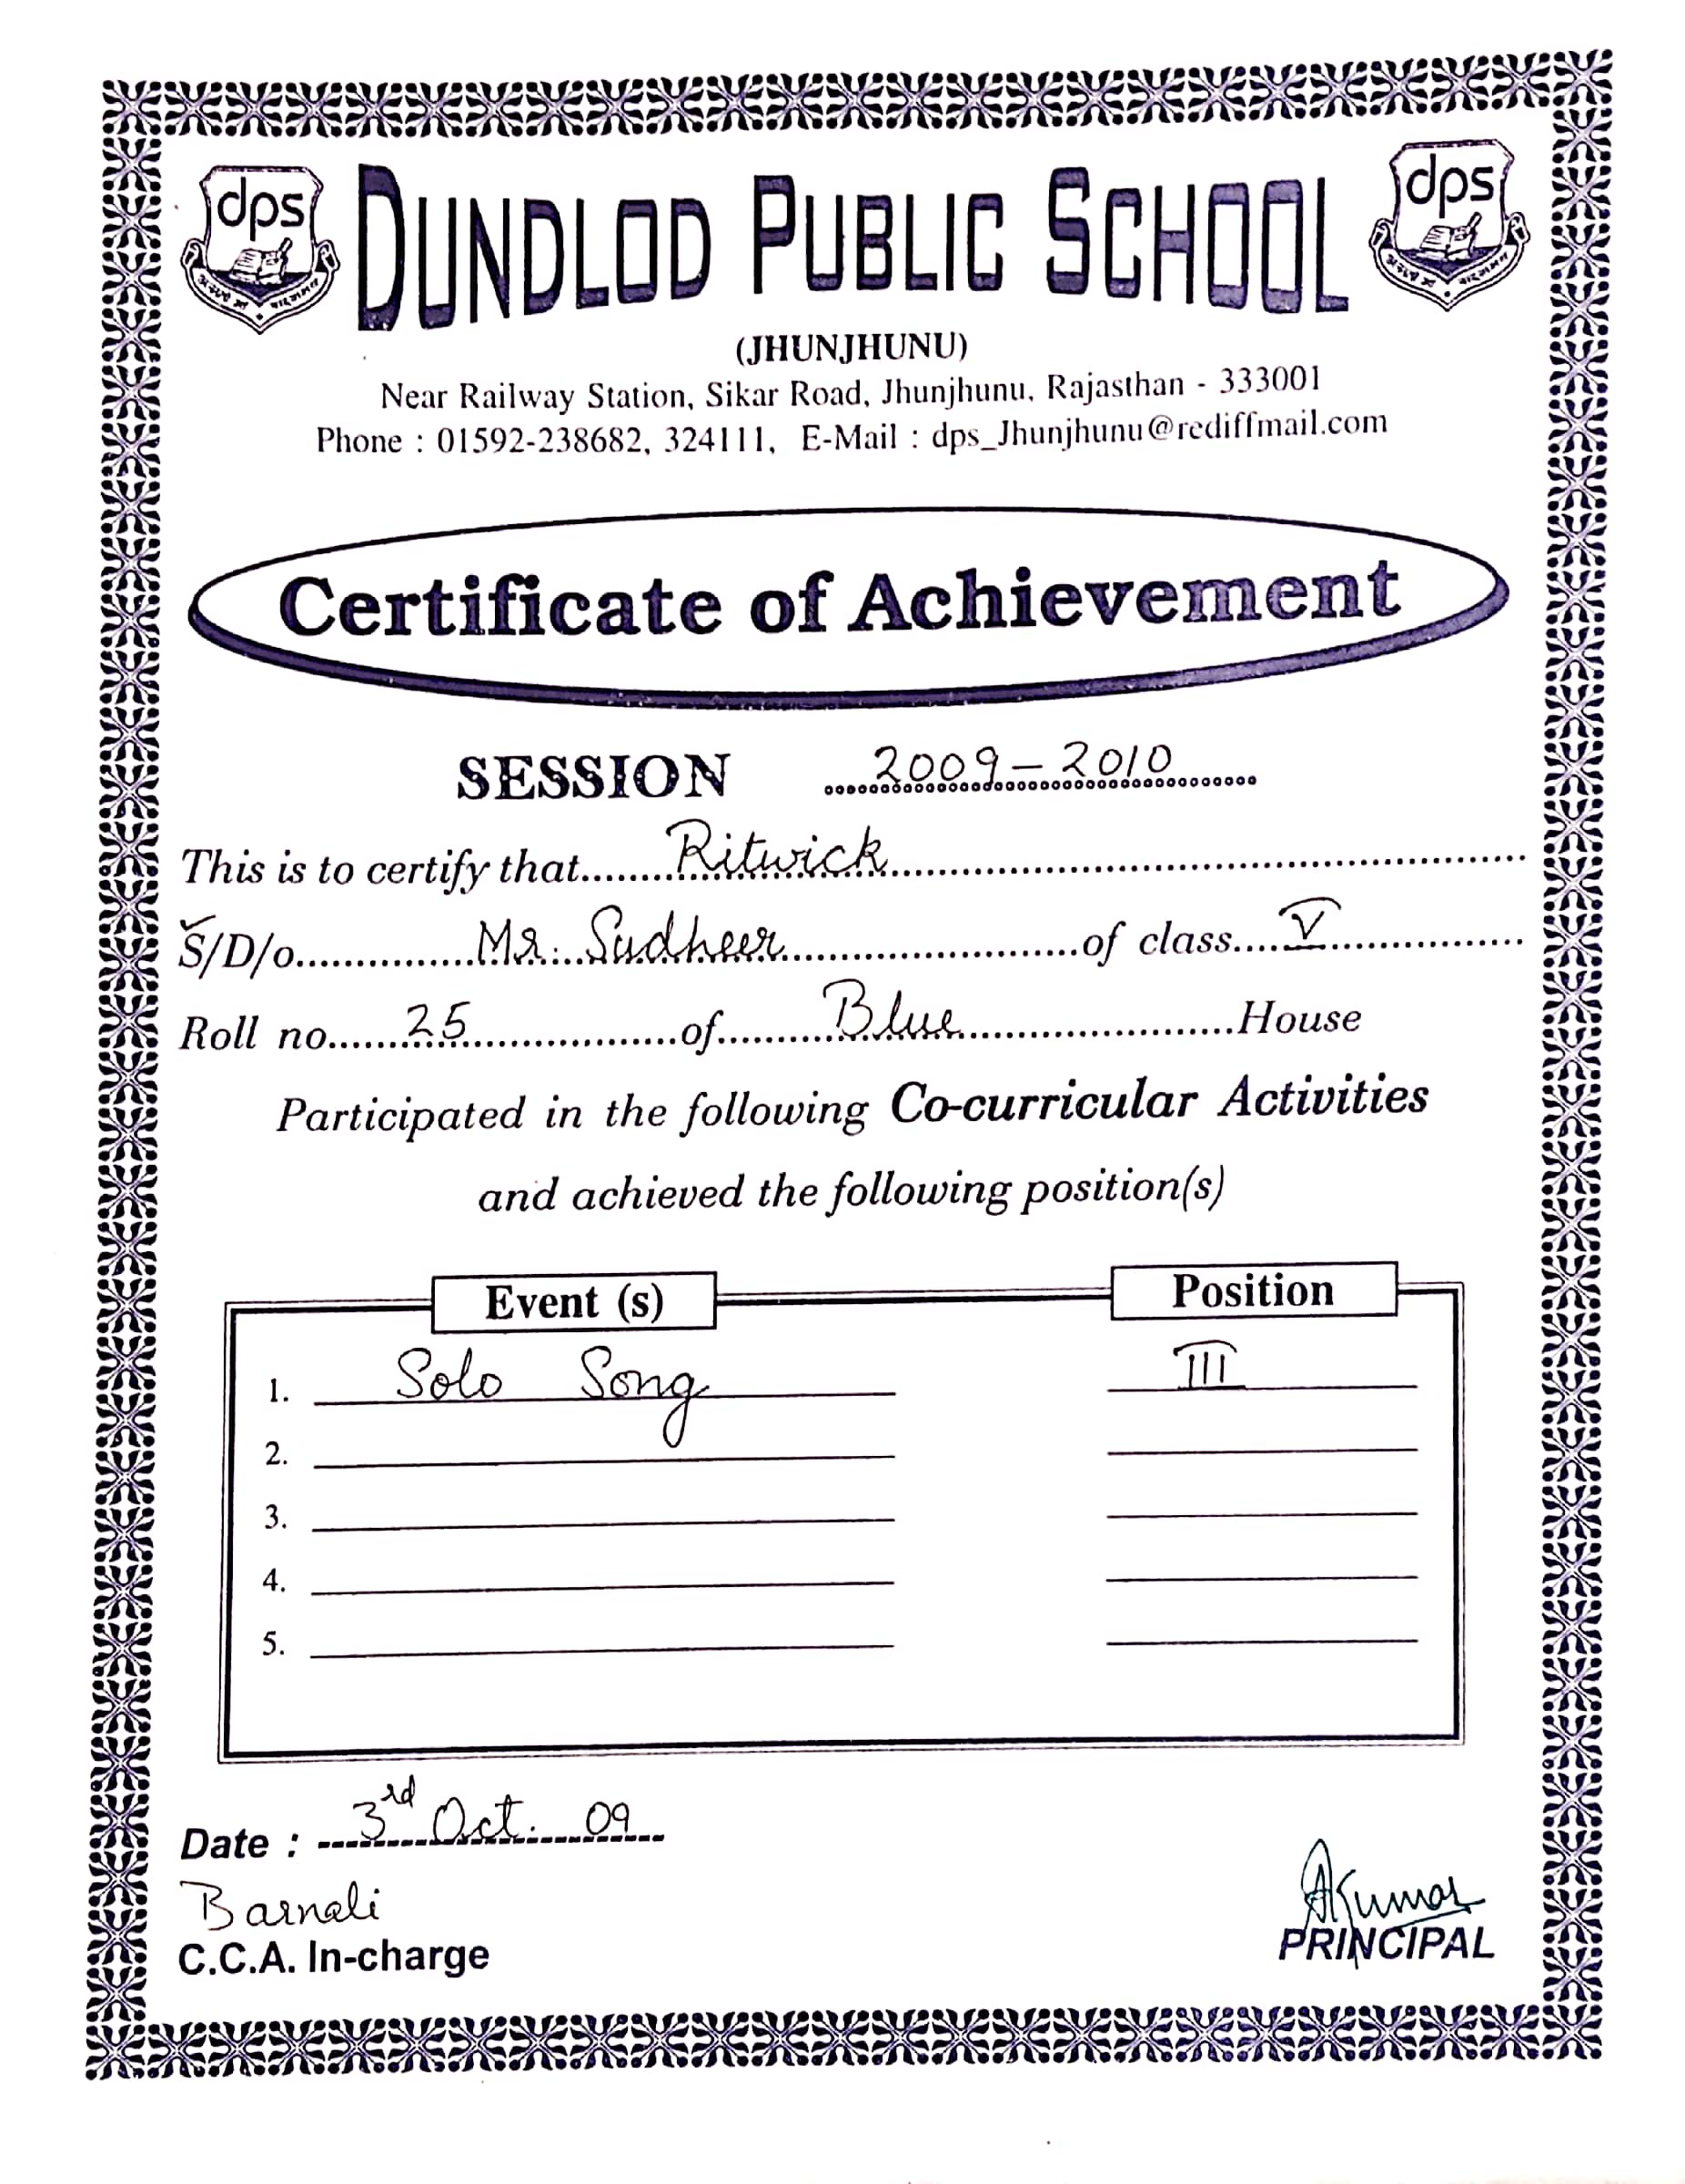 dps DUNDLOD PUBLIC SCHOOL dps
(JHUNJHUNU)
Near Railway Station, Sikar Road, Jhunjhunu, Rajasthan - 333001
Phone : 01592-238682, 324111, E-Mail : dps_Jhunjhunu@rediffmail.com
Certificate of Achievement
SESSION 2009-2010
This is to certify that Ritwick
S/D/o Mr. Sudheer of class V
Roll no. 25 of Blue House
Participated in the following Co-curricular Activities
and achieved the following position(s)
Event (s) Position
1. Solo Song III
2.
3.
4.
5.
Date : 3rd Oct. 09
Barnali AKumar
C.C.A. In-charge PRINCIPAL